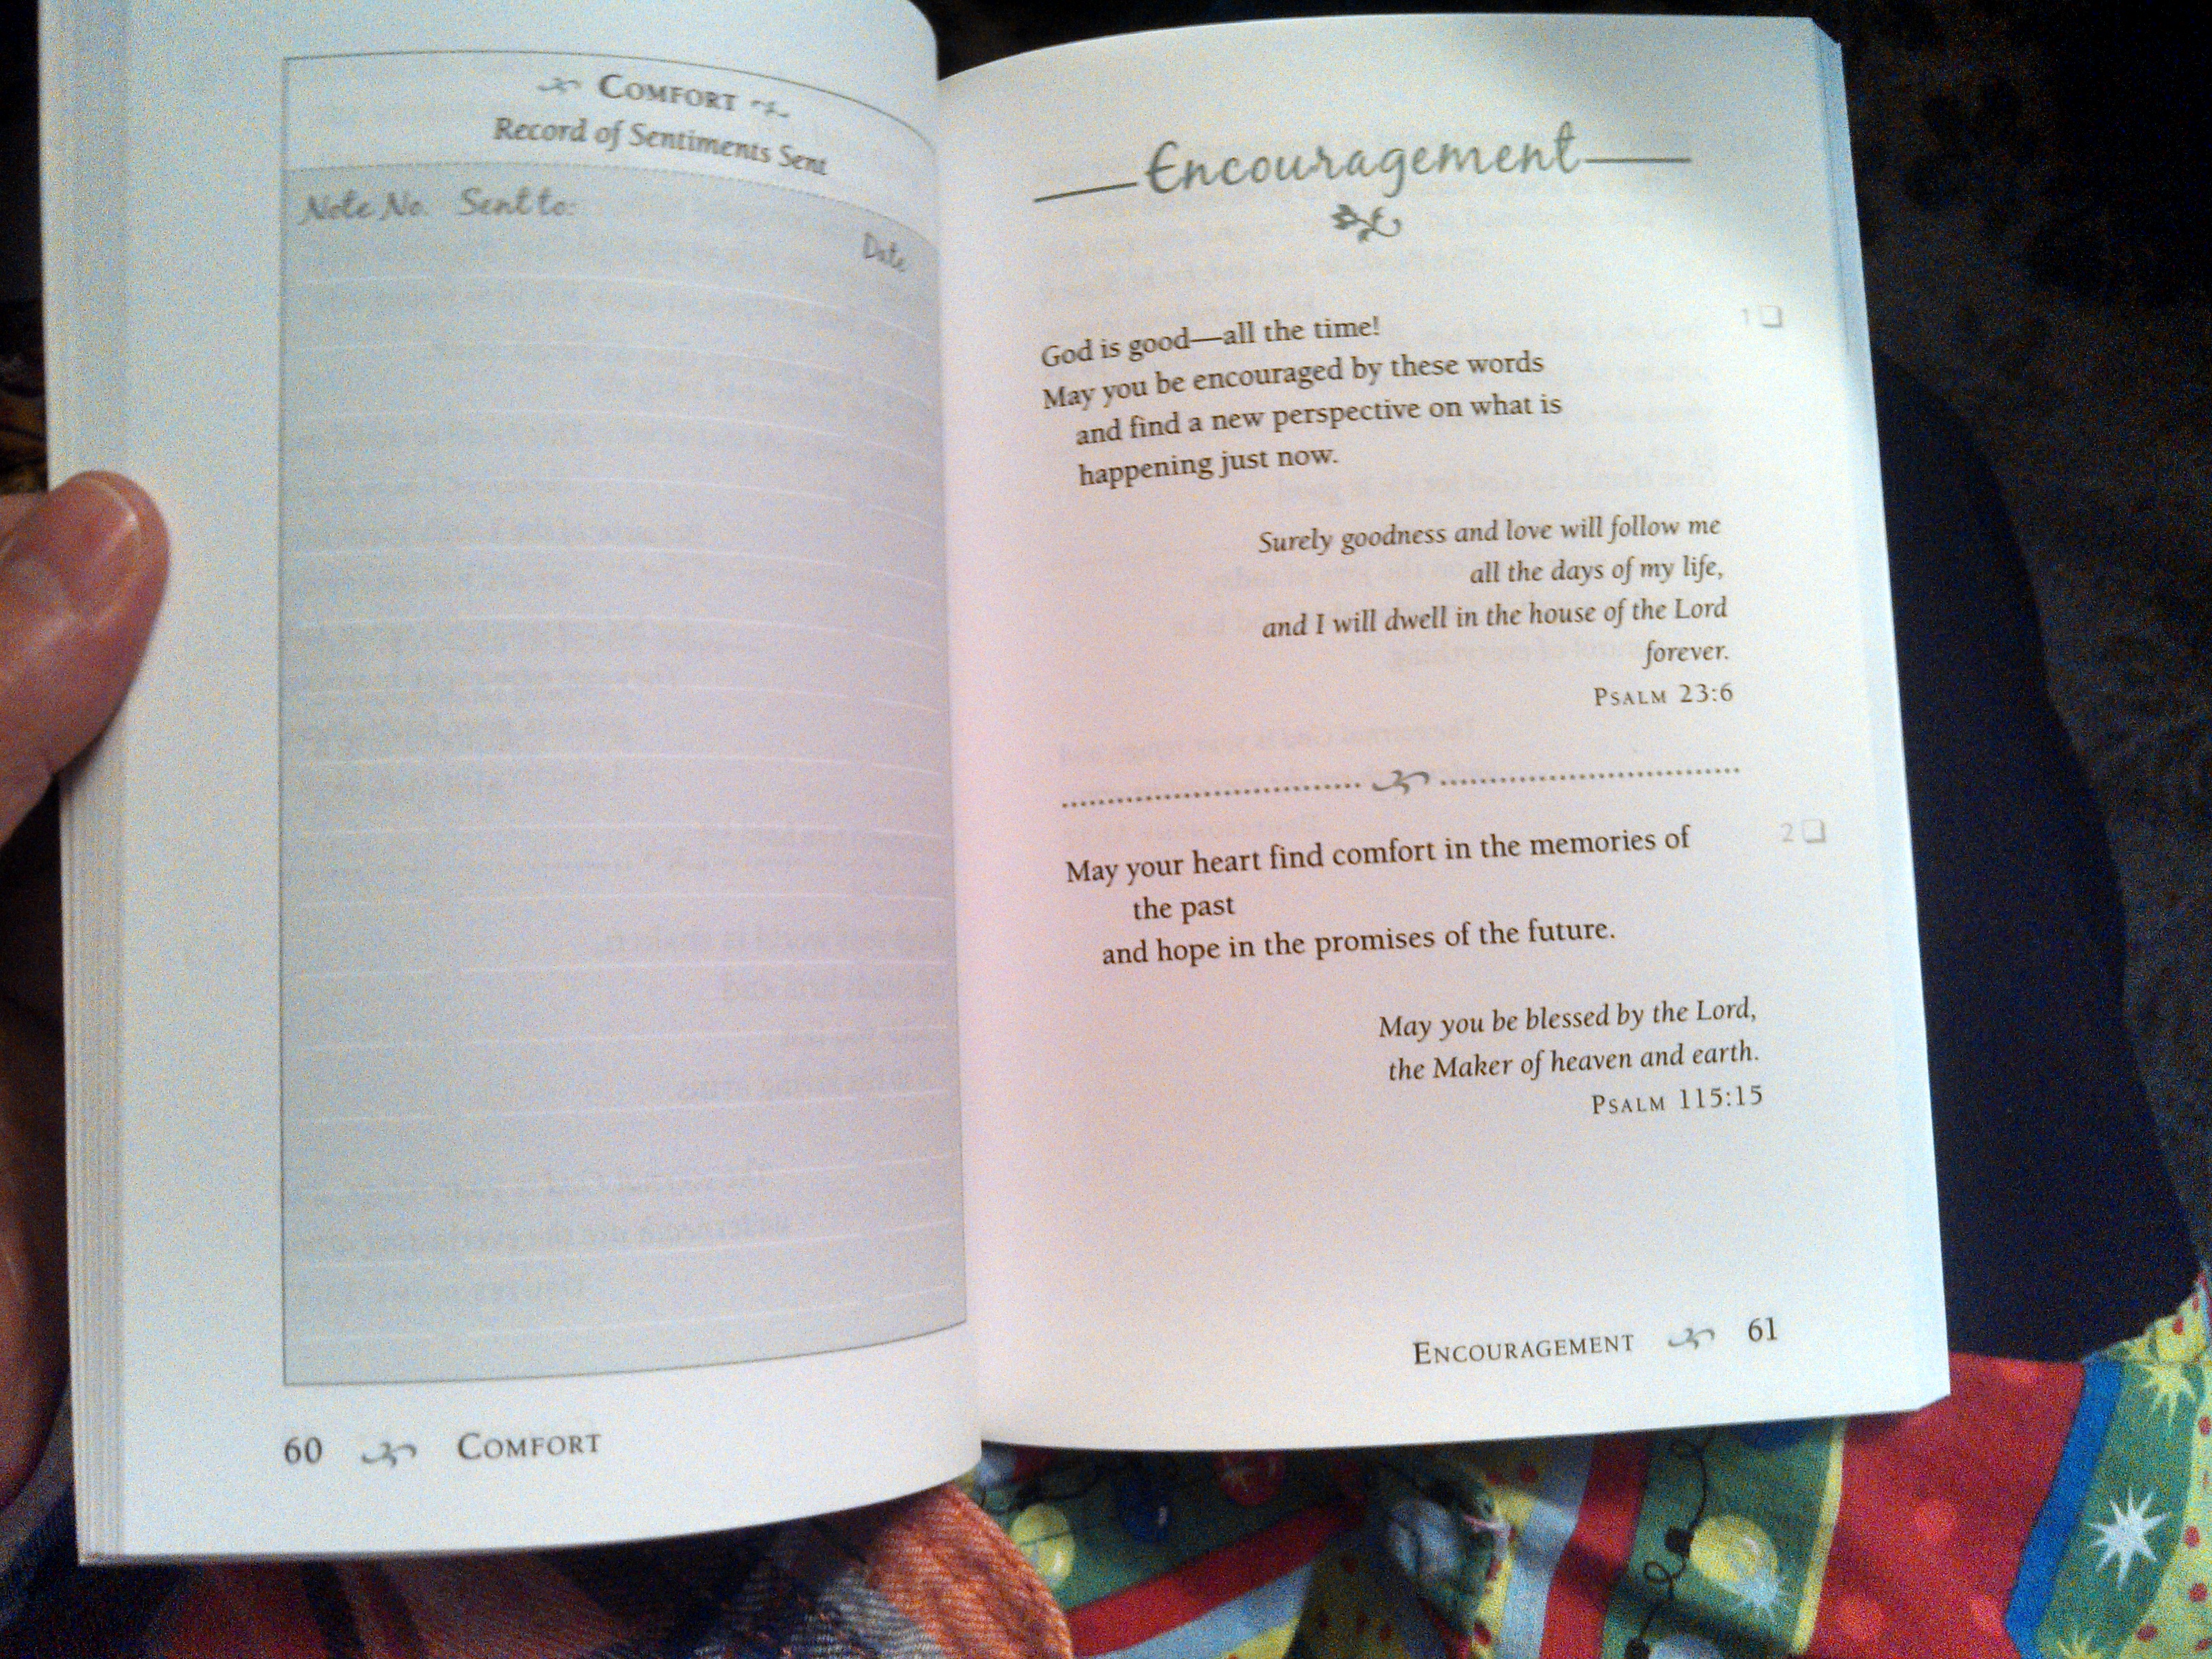 Comfort
Record of Sentiments Sent
Note No. Sent to: Date
60 Comfort
Encouragement
1
God is good—all the time!
May you be encouraged by these words
and find a new perspective on what is
happening just now.
Surely goodness and love will follow me
all the days of my life,
and I will dwell in the house of the Lord
forever.
Psalm 23:6
2
May your heart find comfort in the memories of
the past
and hope in the promises of the future.
May you be blessed by the Lord,
the Maker of heaven and earth.
Psalm 115:15
Encouragement 61